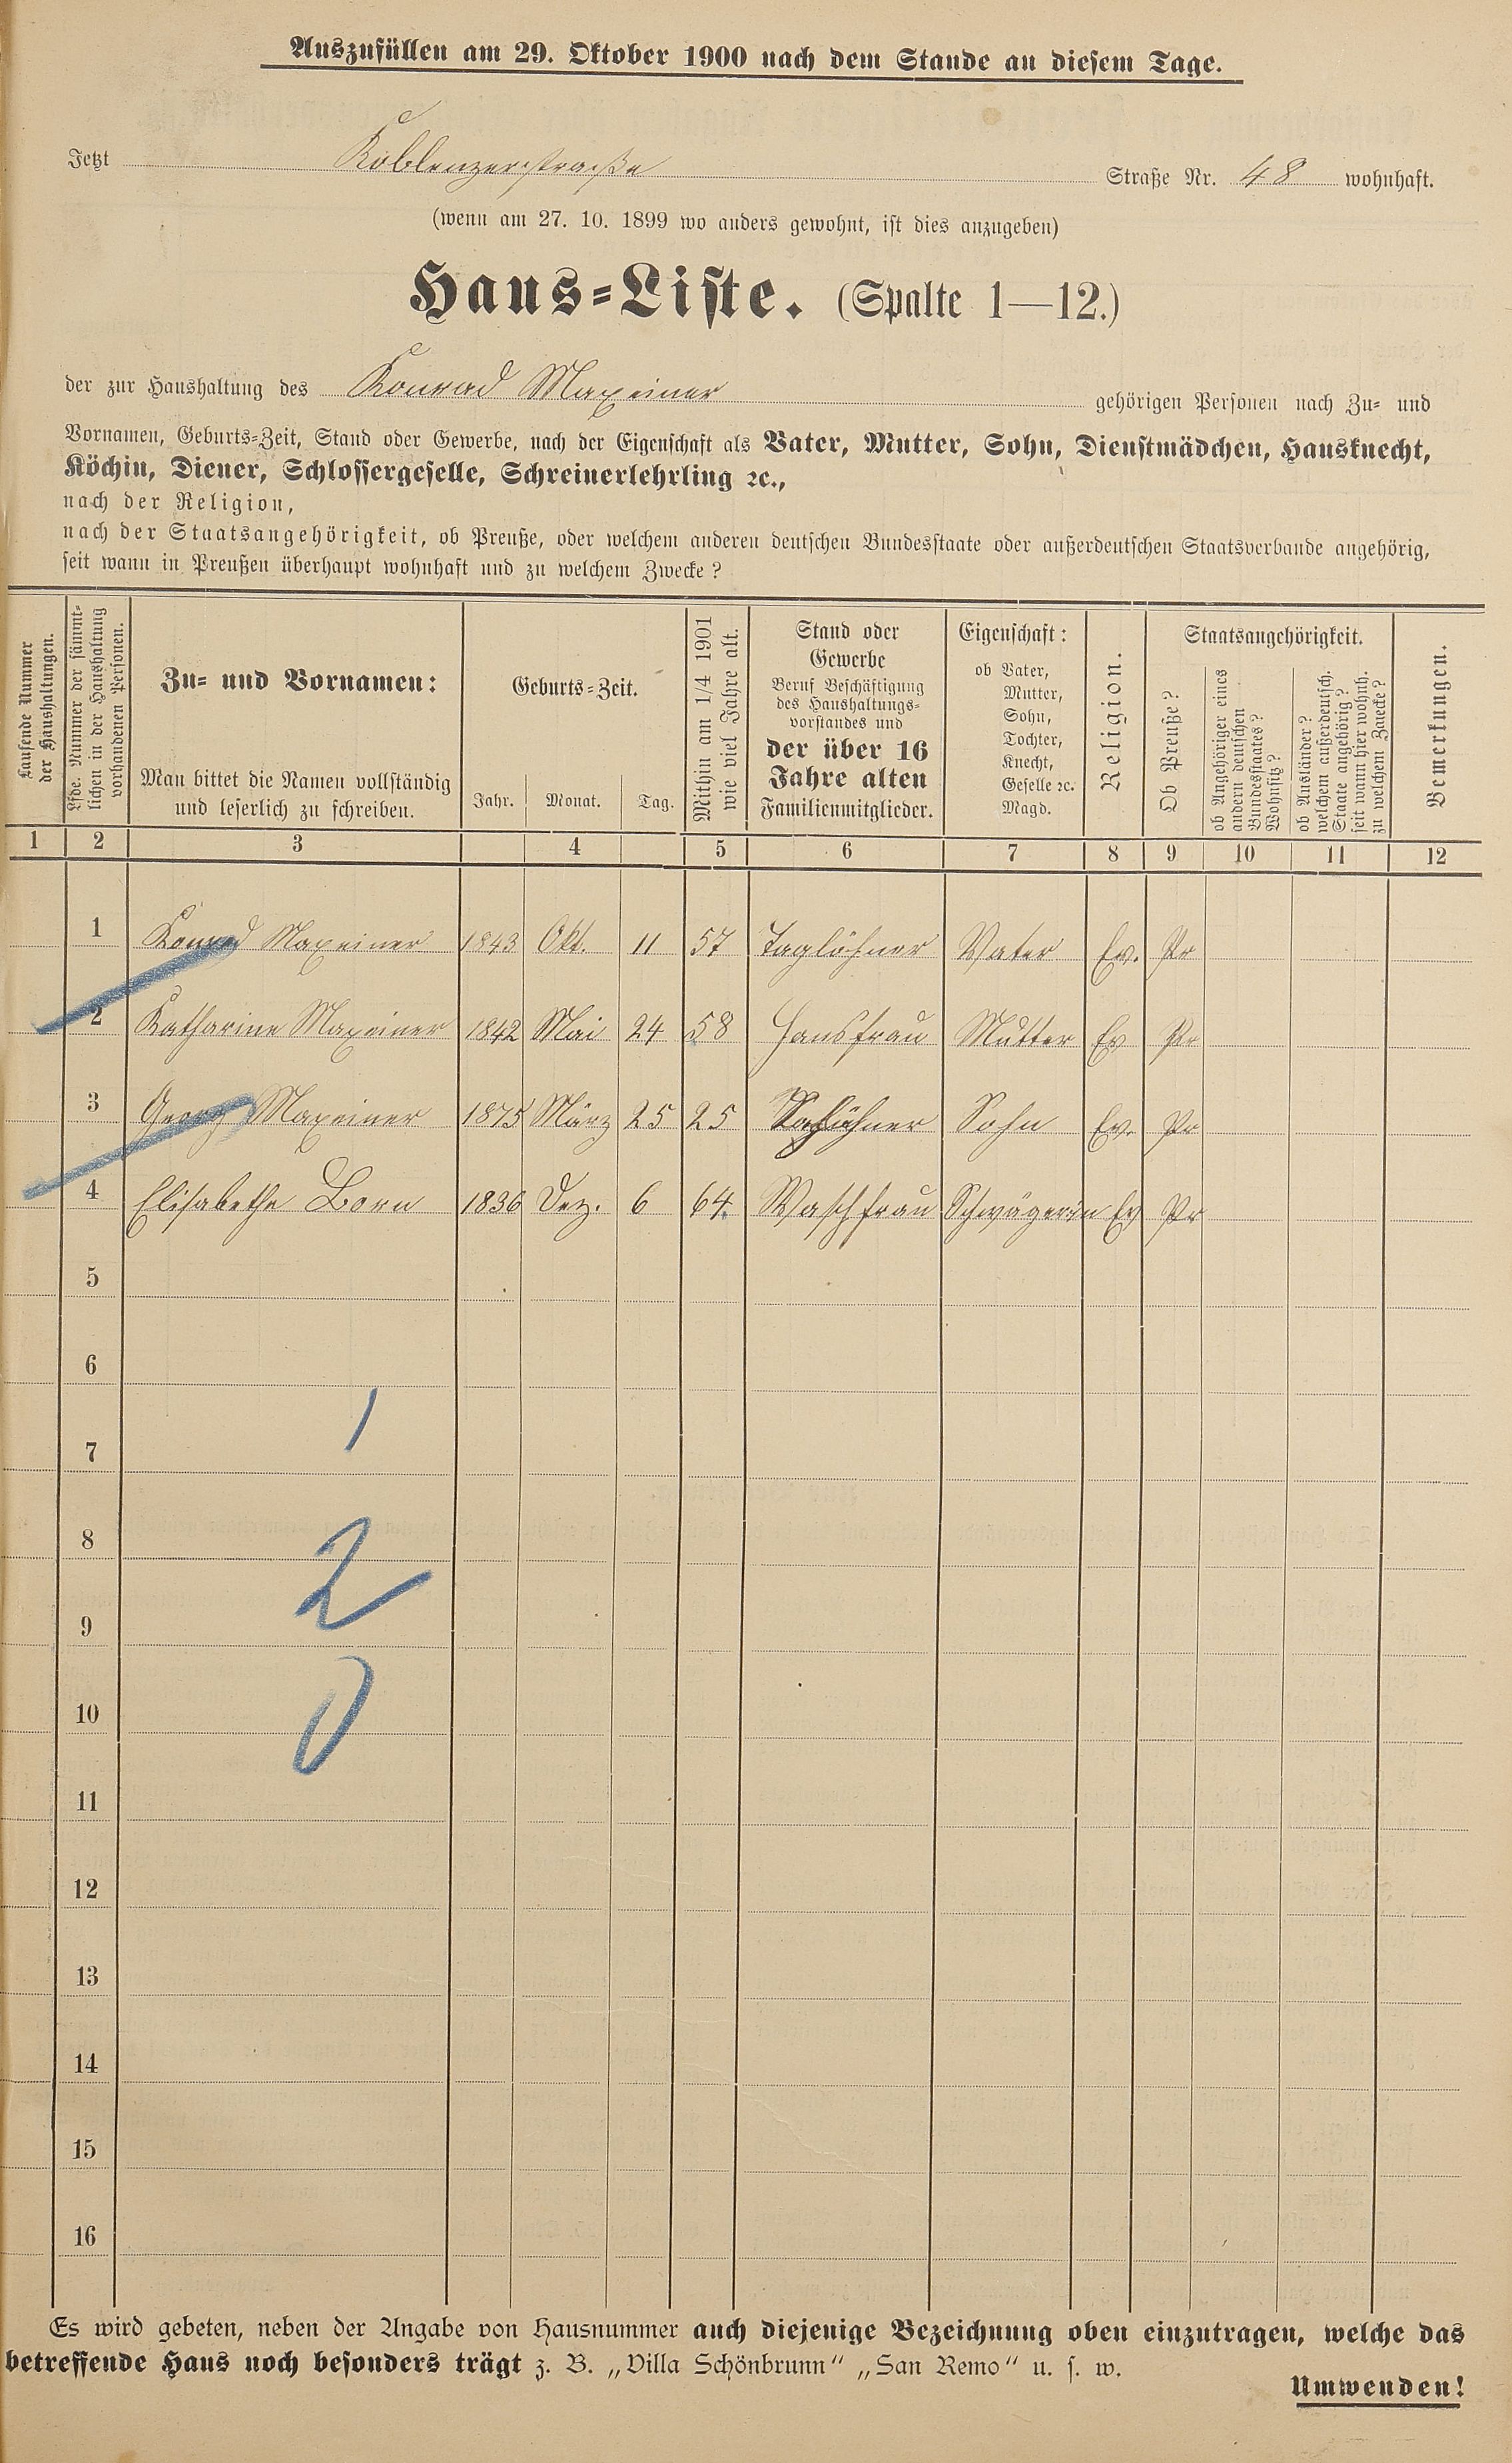 Auszufüllen am 29. Oktober 1900 nach dem Stande an diesem Tage.
Jetzt Koblenzerstraße Straße Nr. 48 wohnhaft.
(wenn am 27. 10. 1899 wo anders gewohnt, ist dies anzugeben)
Haus-Liste. (Spalte 1—12.)
der zur Haushaltung des Konrad Maxeiner gehörigen Personen nach Zu- und
Vornamen, Geburts-Zeit, Stand oder Gewerbe, nach der Eigenschaft als Vater, Mutter, Sohn, Dienstmädchen, Hausknecht,
Köchin, Diener, Schlossergeselle, Schreinerlehrling ꝛc.,
nach der Religion,
nach der Staatsangehörigkeit, ob Preuße, oder welchem anderen deutschen Bundesstaate oder außerdeutschen Staatsverbande angehörig,
seit wann in Preußen überhaupt wohnhaft und zu welchem Zwecke?
Laufende Nummer
der Haushaltungen.
Lfde. Nummer der sämmt-
lichen in der Haushaltung
vorhandenen Personen.
Zu- und Vornamen:
Man bittet die Namen vollständig
und leserlich zu schreiben.
Geburts-Zeit.
Jahr. Monat. Tag.
Mithin am 1/4 1901
wie viel Jahre alt.
Stand oder
Gewerbe
Beruf Beschäftigung
des Haushaltungs-
vorstandes und
der über 16
Jahre alten
Familienmitglieder.
Eigenschaft:
ob Vater,
Mutter,
Sohn,
Tochter,
Knecht,
Geselle ꝛc.
Magd.
Religion.
Staatsangehörigkeit.
Ob Preuße?
ob Angehöriger eines
andern deutschen
Bundesstaates?
Wohnsitz?
ob Ausländer?
welchem außerdeutsch.
Staate angehörig?
seit wann hier wohnh.
zu welchem Zwecke?
Bemerkungen.
1 2 3 4 5 6 7 8 9 10 11 12
1 Konrad Maxeiner 1843 Okt. 11 57 Taglöhner Vater Ev. Pr
2 Katharine Maxeiner 1842 Mai 24 58 Hausfrau Mutter Ev Pr
3 Georg Maxeiner 1875 März 25 25 Sohn Ev. Pr
4 Elisabethe Born 1836 Dez. 6 64 Waschfrau Schwägerin Ev Pr
5
6
1
7
8
2
9
10
0
11
12
13
14
15
16
Es wird gebeten, neben der Angabe von Hausnummer auch diejenige Bezeichnung oben einzutragen, welche das
betreffende Haus noch besonders trägt z. B. „Villa Schönbrunn“ „San Remo“ u. s. w.
Umwenden!